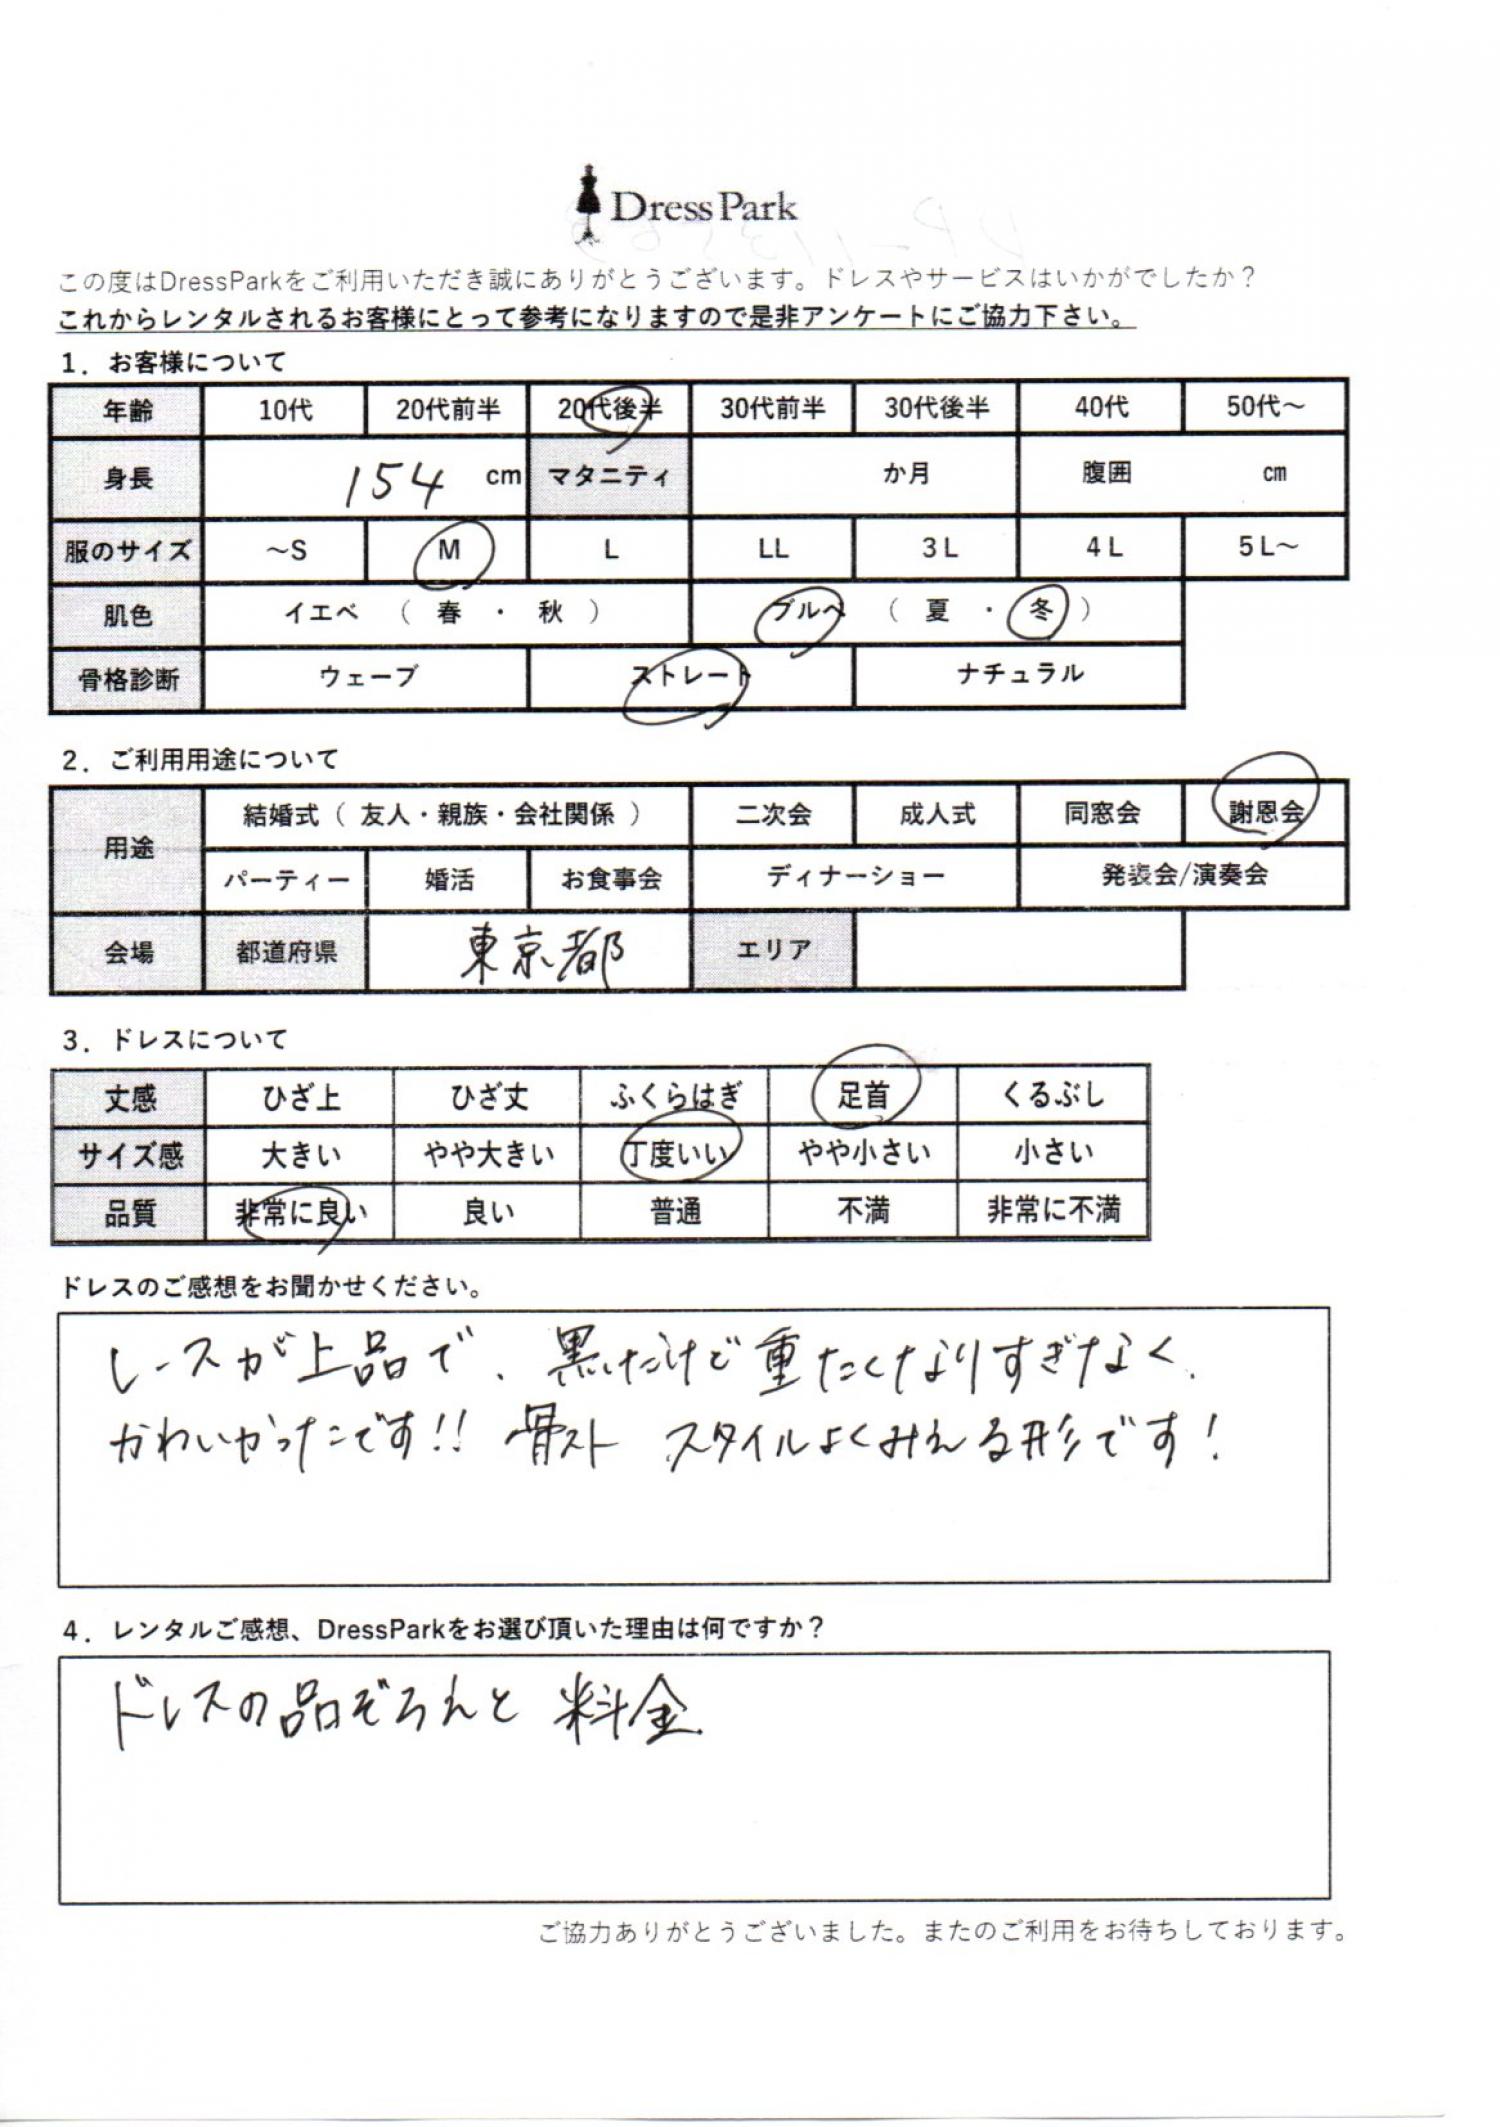 Dress Park
この度はDressParkをご利用いただき誠にありがとうございます。ドレスやサービスはいかがでしたか？
これからレンタルされるお客様にとって参考になりますので是非アンケートにご協力下さい。
1．お客様について
年齢 10代 20代前半 20代後半 30代前半 30代後半 40代 50代～
身長 154 cm マタニティ か月 腹囲 cm
服のサイズ ～S M L LL 3L 4L 5L～
肌色 イエベ （ 春 ・ 秋 ） ブルベ （ 夏 ・ 冬 ）
骨格診断 ウェーブ ストレート ナチュラル
2．ご利用用途について
用途 結婚式（ 友人・親族・会社関係 ） 二次会 成人式 同窓会 謝恩会
パーティー 婚活 お食事会 ディナーショー 発表会/演奏会
会場 都道府県 東京都 エリア
3．ドレスについて
丈感 ひざ上 ひざ丈 ふくらはぎ 足首 くるぶし
サイズ感 大きい やや大きい 丁度いい やや小さい 小さい
品質 非常に良い 良い 普通 不満 非常に不満
ドレスのご感想をお聞かせください。
レースが上品で、黒だけど重たくなりすぎなく、
かわいかったです!! 骨スト スタイルよくみえる形です！
4．レンタルご感想、DressParkをお選び頂いた理由は何ですか？
ドレスの品ぞろえと 料金
ご協力ありがとうございました。またのご利用をお待ちしております。